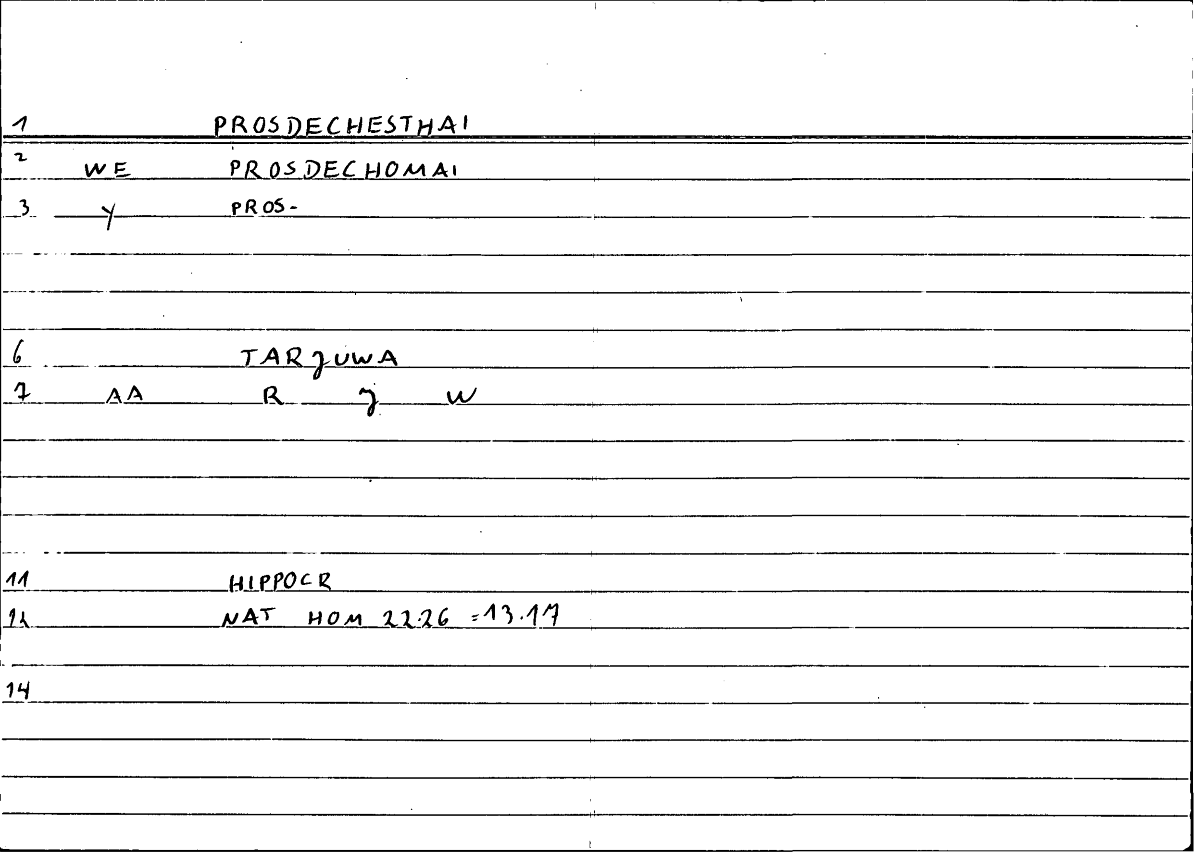 1 PROSDECHESTHAI
2 WE PROSDECHOMAI
3 Y PROS-
6 TARJUWA
7 AA R J W
11 HIPPOCR
12 NAT HOM 22.26 =13.17
14